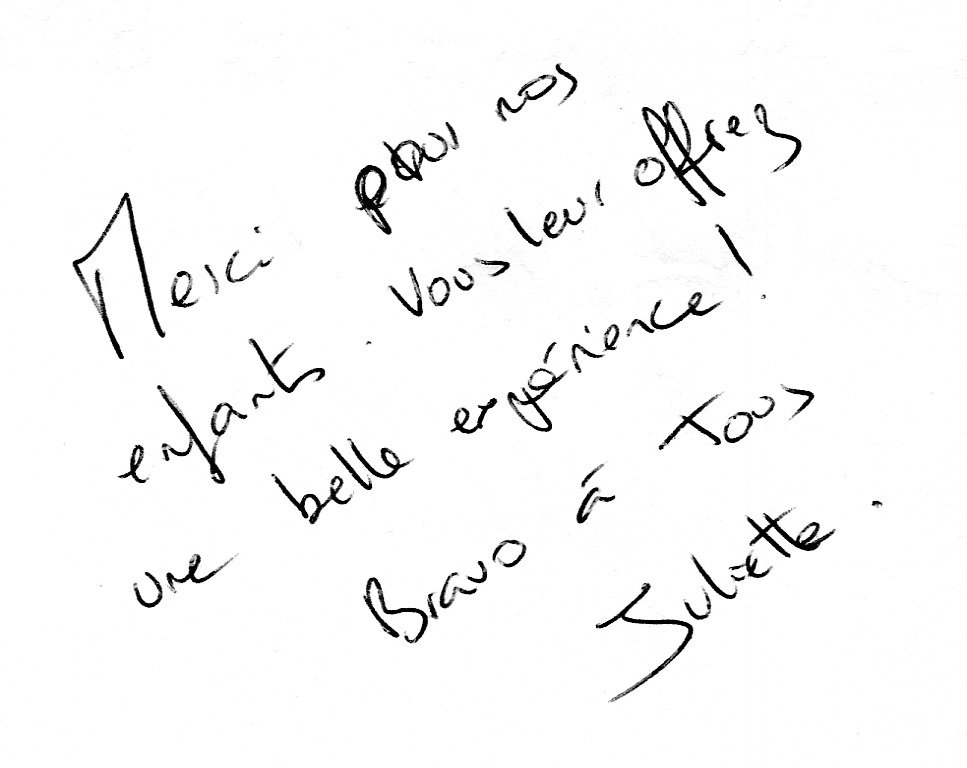 Merci pour nos
enfants. Vous leur offrez
une belle expérience !
Bravo à Tous
Juliette.